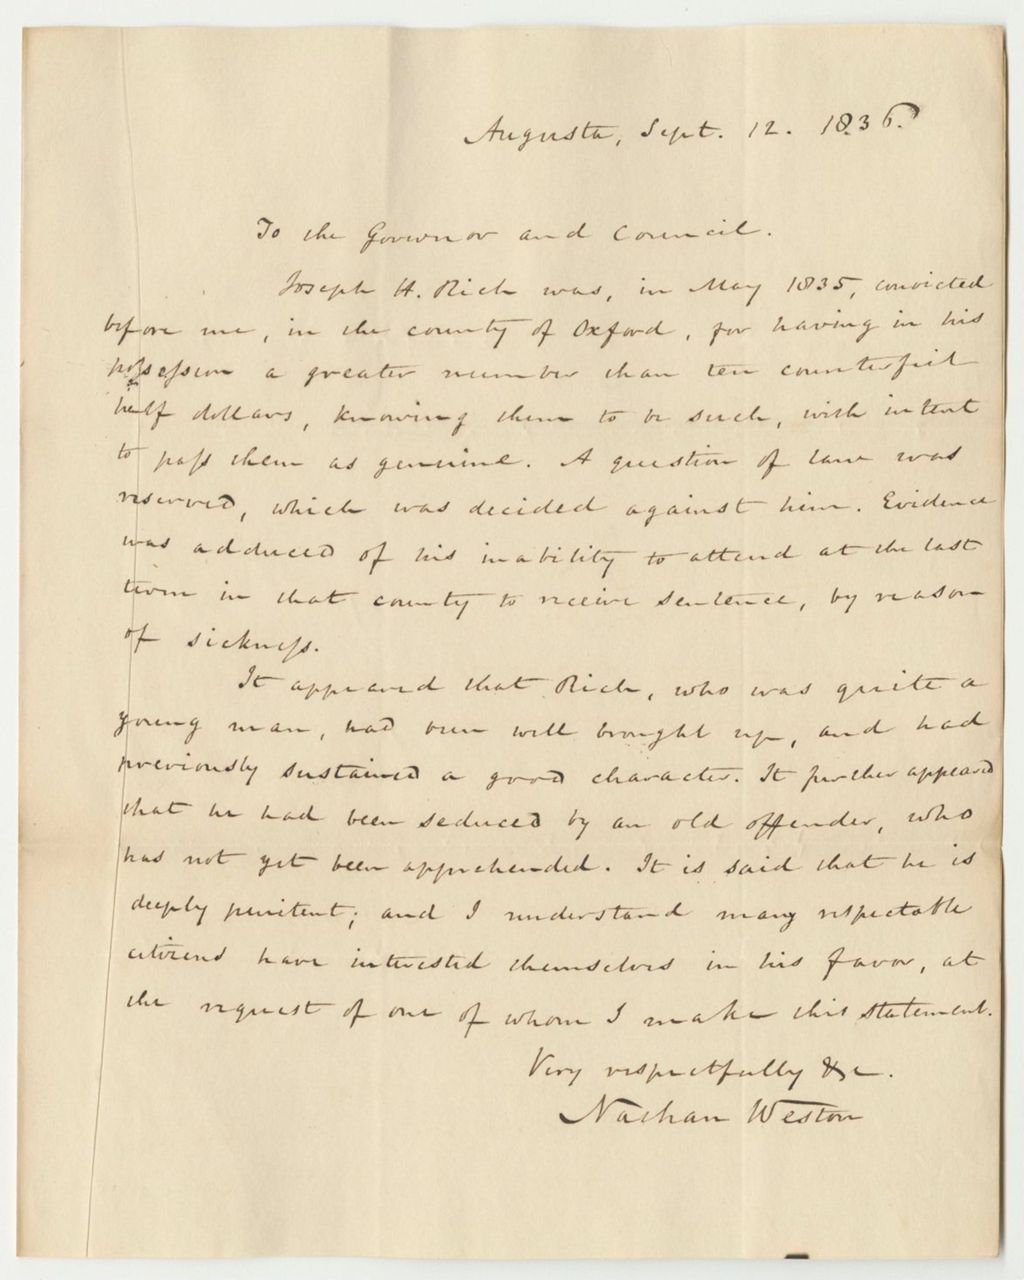 Augusta, Sept. 12. 1836.
To the Governor and Council.
Joseph H. Rich was, in May 1835, convicted
before me, in the county of Oxford, for having in his
possession a greater number than ten counterfeit
half dollars, knowing them to be such, with intent
to pass them as genuine. A question of law was
reserved, which was decided against him. Evidence
was adduced of his inability to attend at the last
term in that county to receive sentence, by reason
of sickness.
It appeared that Rich, who was quite a
young man, had been well brought up, and had
previously sustained a good character. It further appeared
that he had been seduced by an old offender, who
has not yet been apprehended. It is said that he is
deeply penitent; and I understand many respectable
citizens have interested themselves in his favor, at
the request of one of whom I make this statement.
Very respectfully &c.
Nathan Weston